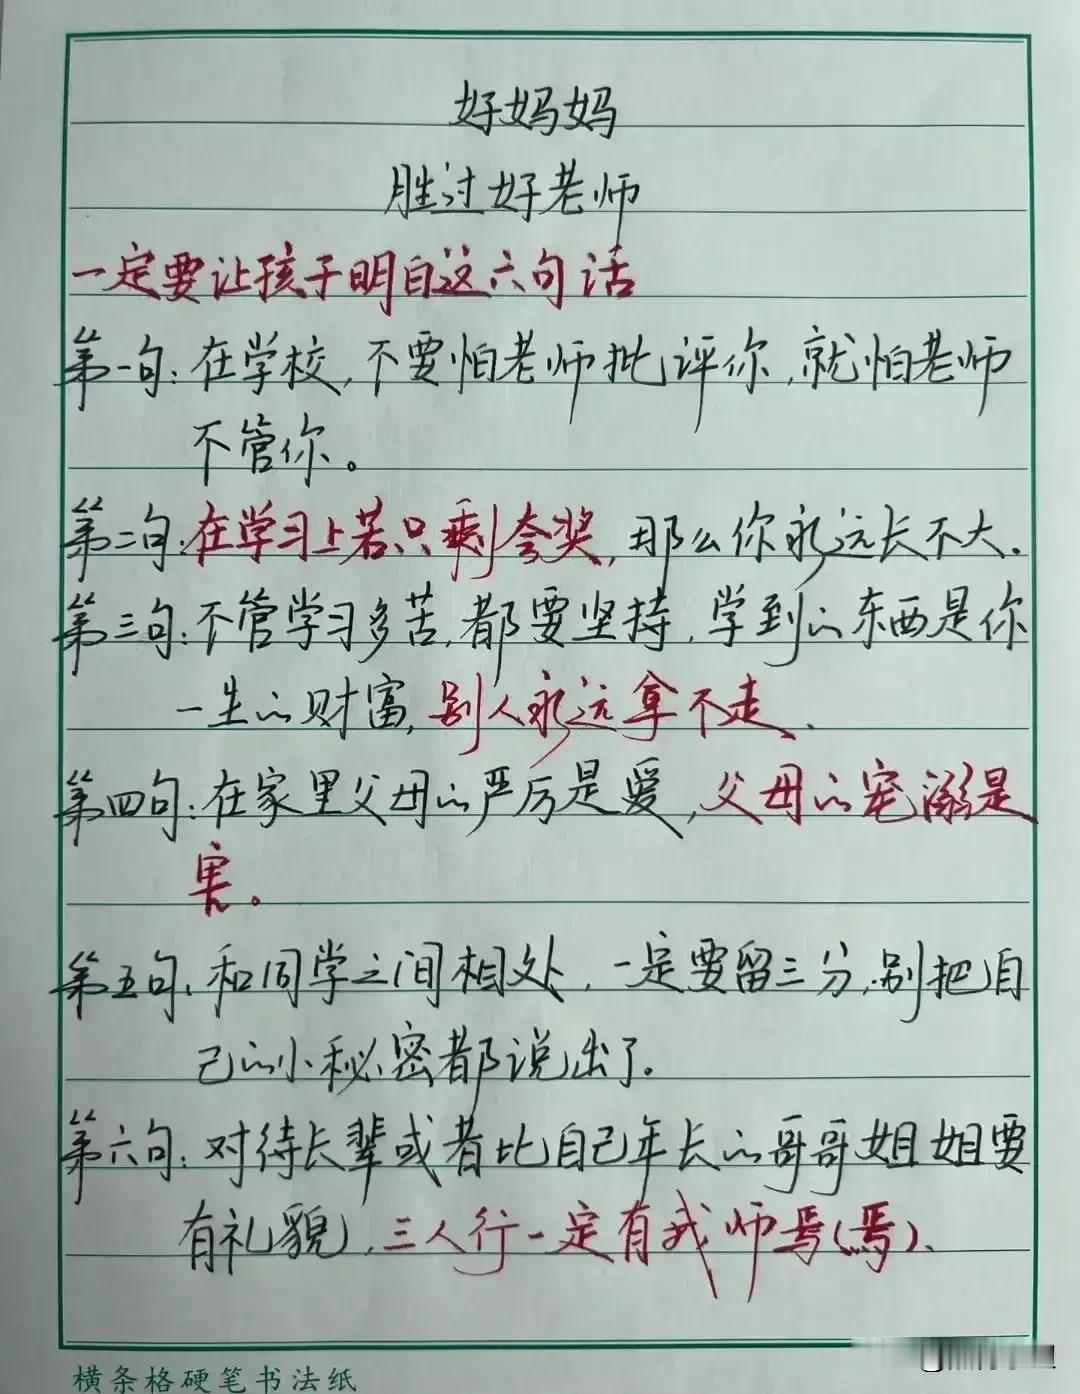 好妈妈
胜过好老师
一定要让孩子明白这六句话
第一句：在学校，不要怕老师批评你，就怕老师
不管你。
第二句：在学习上若只剩夸奖，那么你永远长不大.
第三句：不管学习多苦，都要坚持，学到的东西是你
一生的财富，别人永远拿不走.
第四句：在家里父母的严厉是爱，父母的宠溺是
害。
第五句：和同学之间相处，一定要留三分，别把自
己的小秘密都说出了.
第六句：对待长辈或者比自己年长的哥哥姐姐要
有礼貌，三人行一定有我师焉(焉).
横条格硬笔书法纸